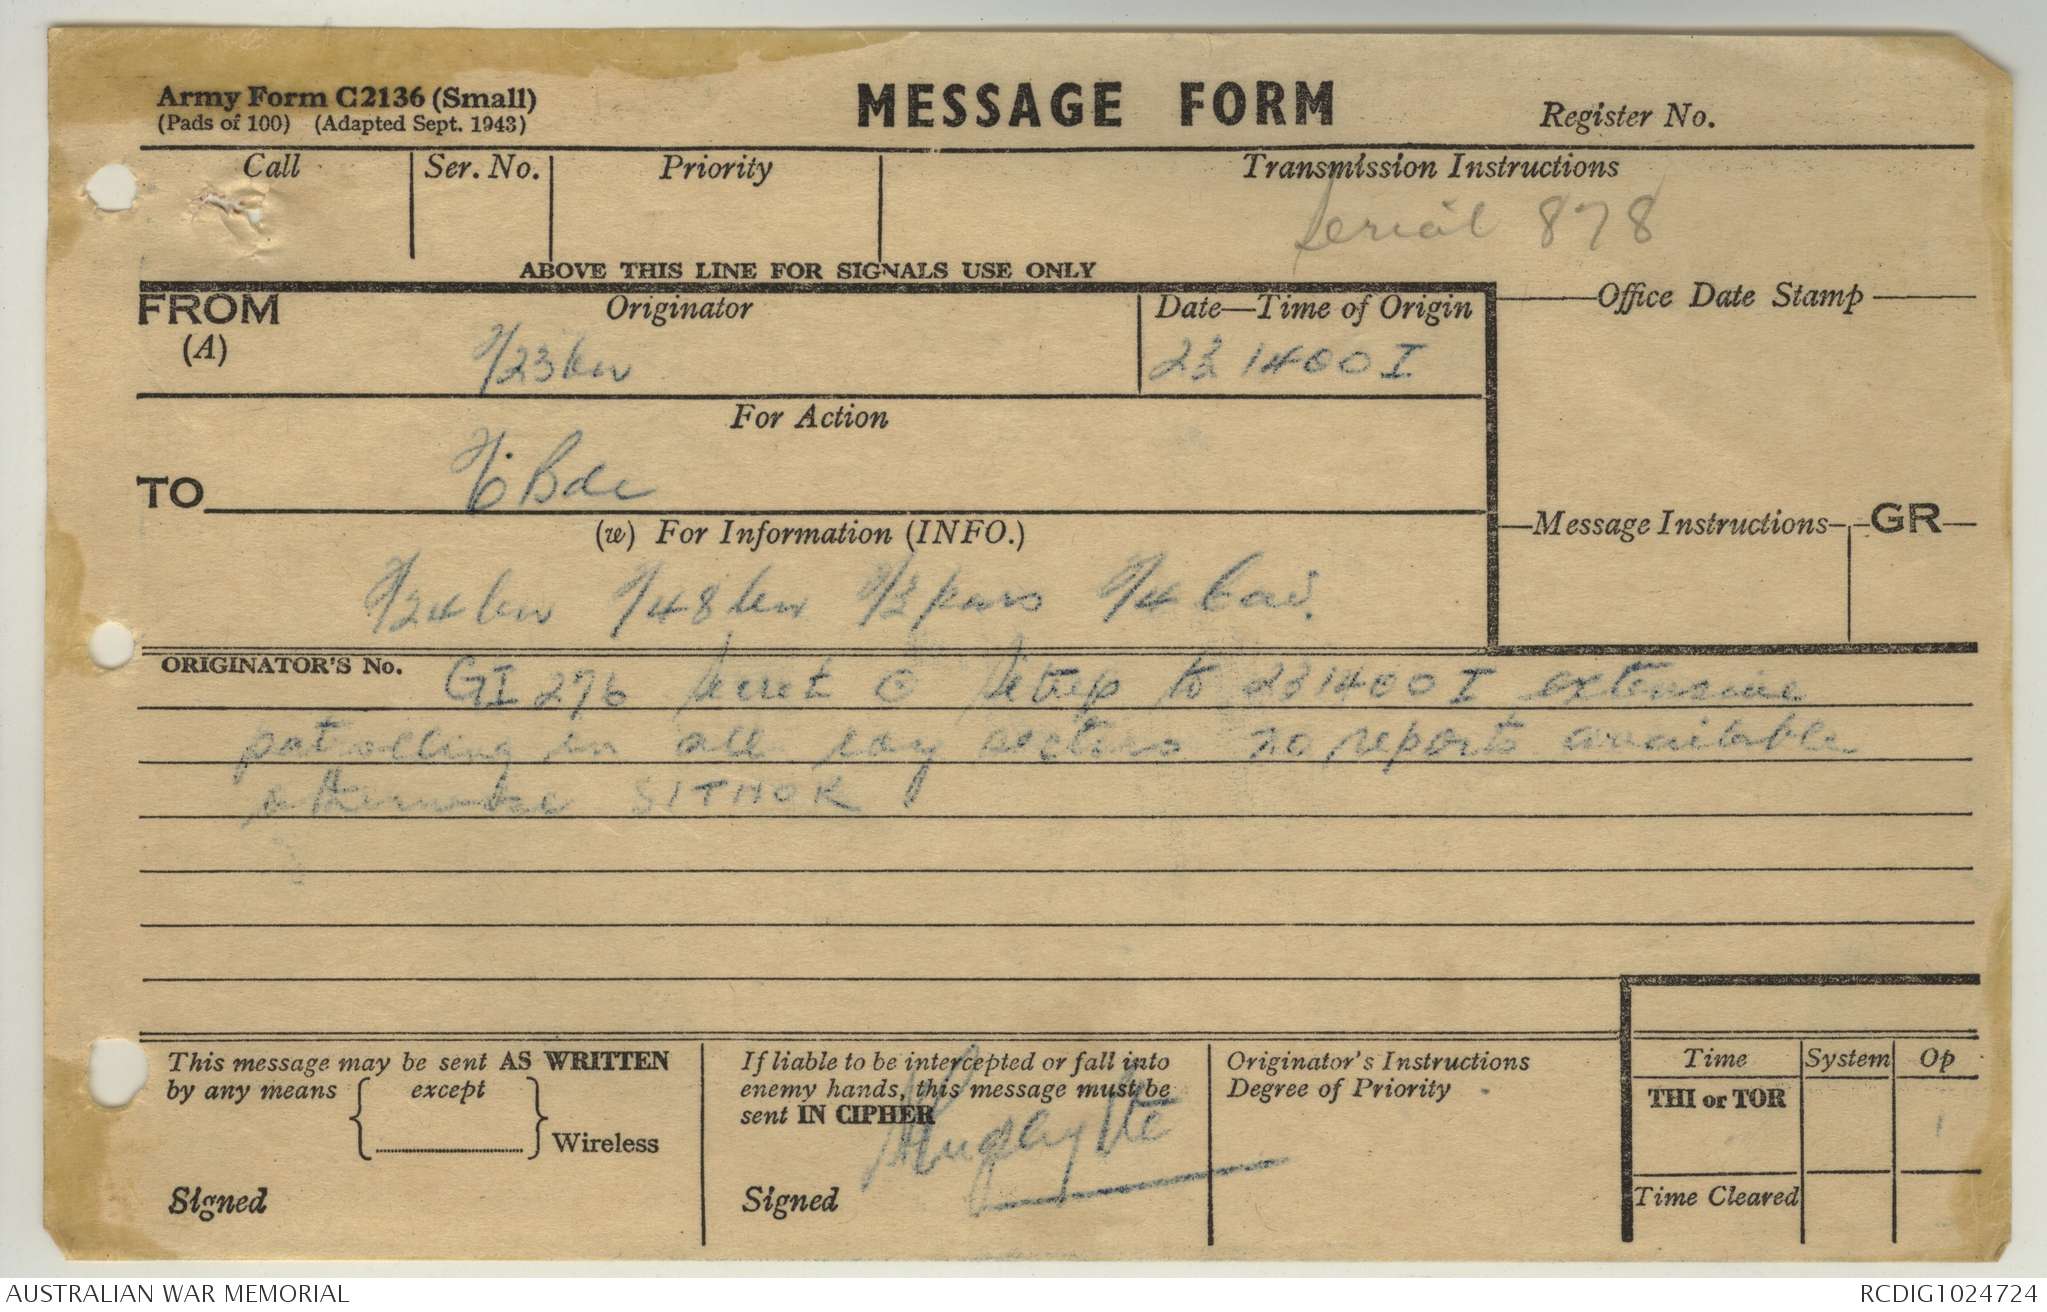 Army Form C2136 (Small)
(Pads of 100) (Adapted Sept. 1943)
MESSAGE FORM
Register No.
Call
Ser. No.
Priority
Transmission Instructions
Serial 878
ABOVE THIS LINE FOR SIGNALS USE ONLY
FROM
(A)
Originator
2/23 bn
Date—Time of Origin
231400 I
Office Date Stamp
For Action
TO
26 Bde
(w) For Information (INFO.)
Message Instructions
GR
2/24 bn 2/48 bn 2/3 pnrs 2/4
ORIGINATOR'S No.
GI 276 secret Sitrep to 231400 I extensive
patrolling in all coy sectors no reports available
otherwise SITNOR
This message may be sent AS WRITTEN
by any means except
Wireless
Signed
If liable to be intercepted or fall into
enemy hands, this message must be
sent IN CIPHER
Signed
Originator's Instructions
Degree of Priority
Time
System
Op
THI or TOR
Time Cleared
AUSTRALIAN WAR MEMORIAL
RCDIG1024724